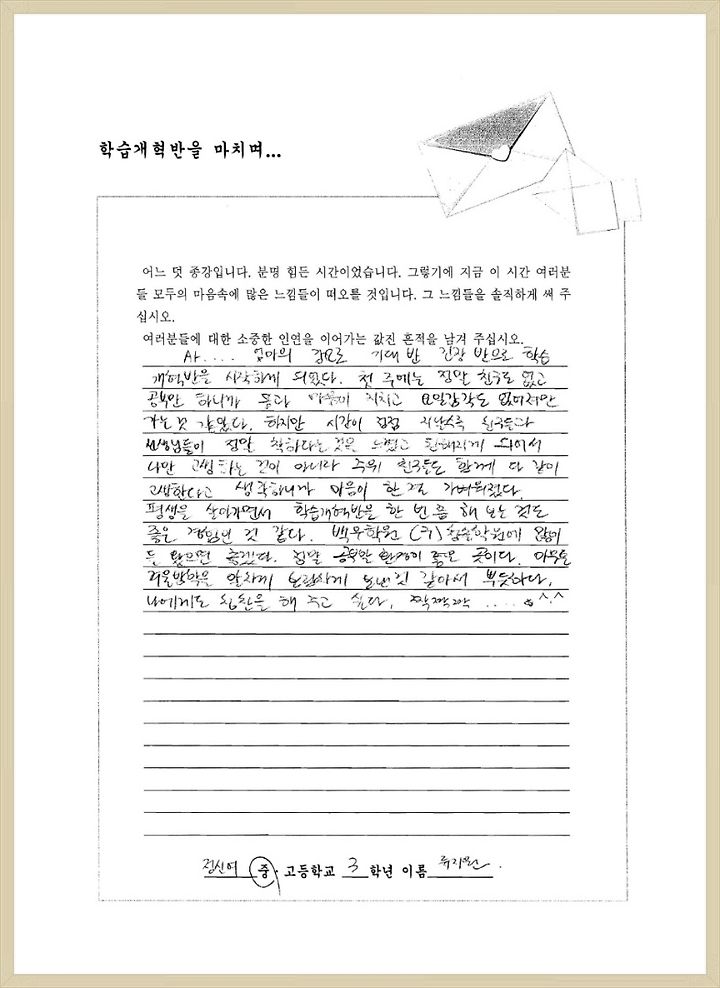 학습개혁반을 마치며...
어느 덧 종강입니다. 분명 힘든 시간이었습니다. 그렇기에 지금 이 시간 여러분
들 모두의 마음속에 많은 느낌들이 떠오를 것입니다. 그 느낌들을 솔직하게 써 주
십시오.
여러분들에 대한 소중한 인연을 이어가는 값진 흔적을 남겨 주십시오.
아.... 엄마의 강요로 기대 반 긴장 반으로 학습
개혁반을 시작하게 되었다. 첫 주에는 정말 친구도 없고
공부만 하니까 몸과 마음이 지치고 요일감각도 없어져만
가는 것 같았다. 하지만 시간이 점점 지날수록 친구들과
선생님들이 정말 착하다는 것을 느꼈고 친해지게 되어서
나만 고생하는 것이 아니라 주위 친구들도 함께 다 같이
고생한다고 생각하니까 마음이 한결 가벼워졌다.
평생을 살아가면서 학습개혁반을 한 번 쯤 해 보는 것도
좋은 경험인 것 같다. 백우학원
왔으면 좋겠다. 정말 공부할 환경이 좋은 곳이다. 아무튼
겨울방학을 알차게 보람차게 보낸 것 같아서 뿌듯하다.
나에게도 칭찬을 해 주고 싶다. 짝짝짝 .... ^.^
정신여 중·고등학교 3 학년 이름 류지원